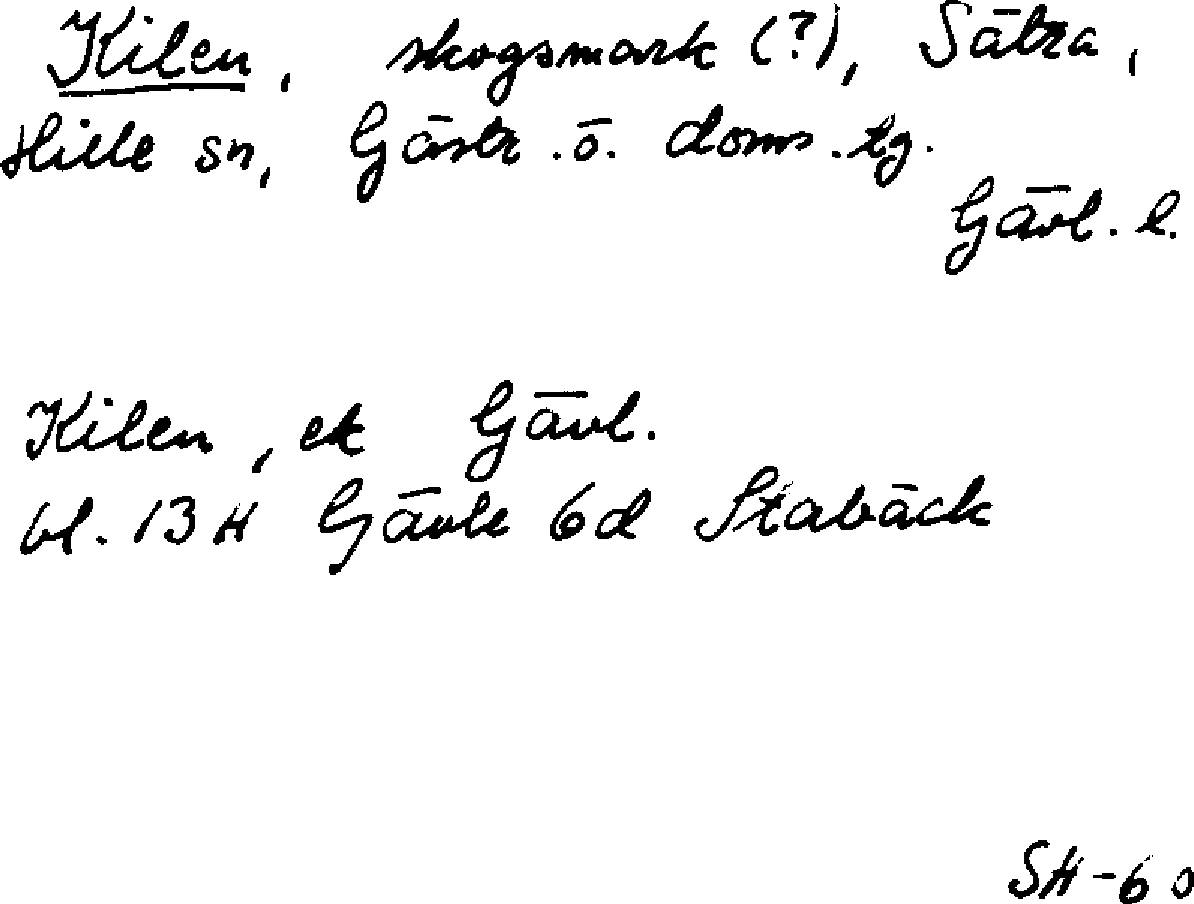 Kilen, skogsmark (?), Sätra,
Hille sn, Gästr. ö. doms. tg.
Gävl. l.
Kilen, ek Gävl.
bl. 13 H Gävle 6d Stabäck
SH-60